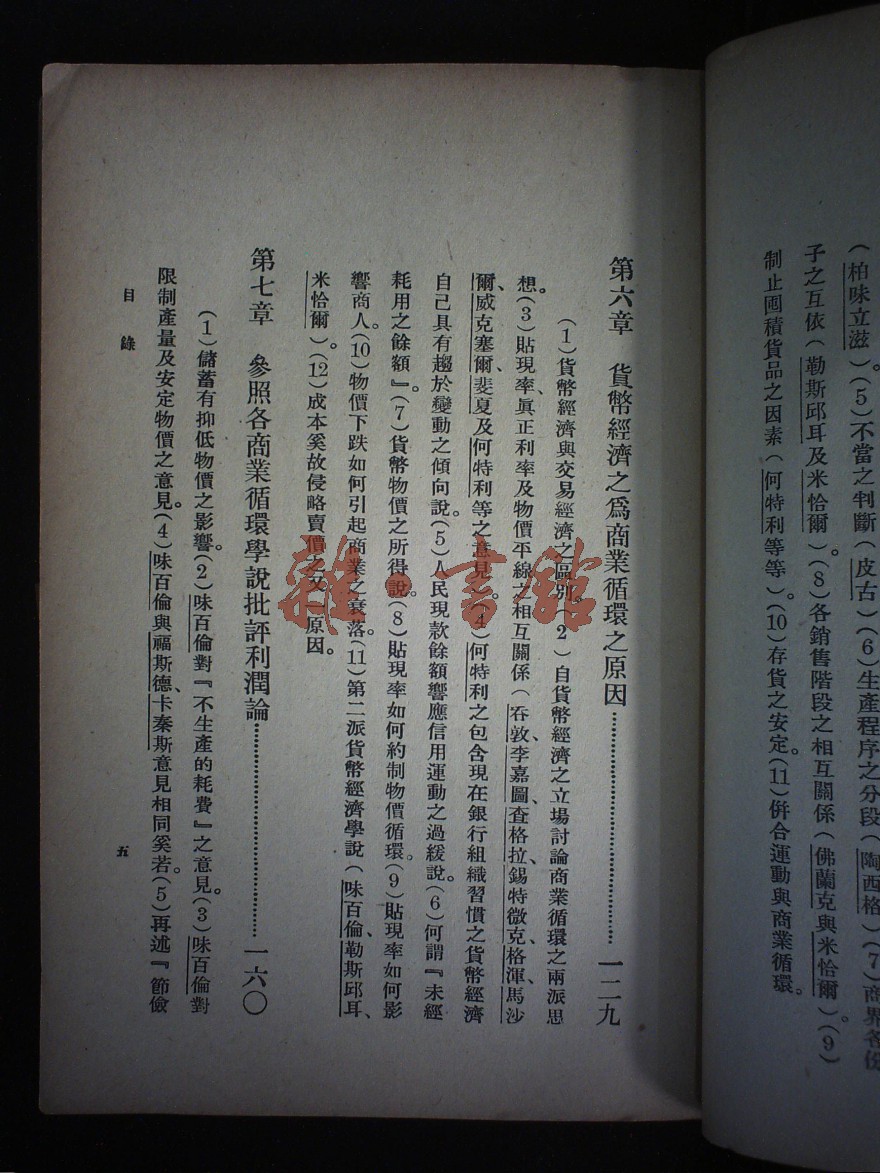 (柏味立滋)。(5)不當之判斷(皮古)(6)生產程序之分段(陶西格)(7)商界各份
子之互依(勒斯邱耳及米恰爾)。(8)各銷售階段之相互關係(佛蘭克與米恰爾)。(9)
制止囤積貨品之因素(何特利等等)。(10)存貨之安定。(11)併合運動與商業循環。
第六章 貨幣經濟之爲商業循環之原因…………一二九
(1)貨幣經濟與交易經濟之區別。(2)自貨幣經濟之立場討論商業循環之兩派思
想。(3)貼現率、眞正利率及物價平線之相互關係(吞敦、李嘉圖、查格拉、錫特微克、格渾、馬沙
爾、威克塞爾、斐夏及何特利等之意見)。(4)何特利之包含現在銀行組織習慣之貨幣經濟
自己具有趨於變動之傾向說。(5)人民現款餘額響應信用運動之過緩說。(6)何謂『未經
耗用之餘額』。(7)貨幣物價之所得說。(8)貼現率如何約制物價循環。(9)貼現率如何影
響商人。(10)物價下跌如何引起商業之衰落。(11)第二派貨幣經濟學說(味百倫、勒斯邱耳、
米恰爾)。(12)成本奚故侵略賣價之又一原因。
第七章 參照各商業循環學說批評利潤論…………一六〇
(1)儲蓄有抑低物價之影響。(2)味百倫對『不生產的耗費』之意見。(3)味百倫對
限制產量及安定物價之意見。(4)味百倫與福斯德、卡秦斯意見相同奚若。(5)再述『節儉
目錄
五
雜·書館